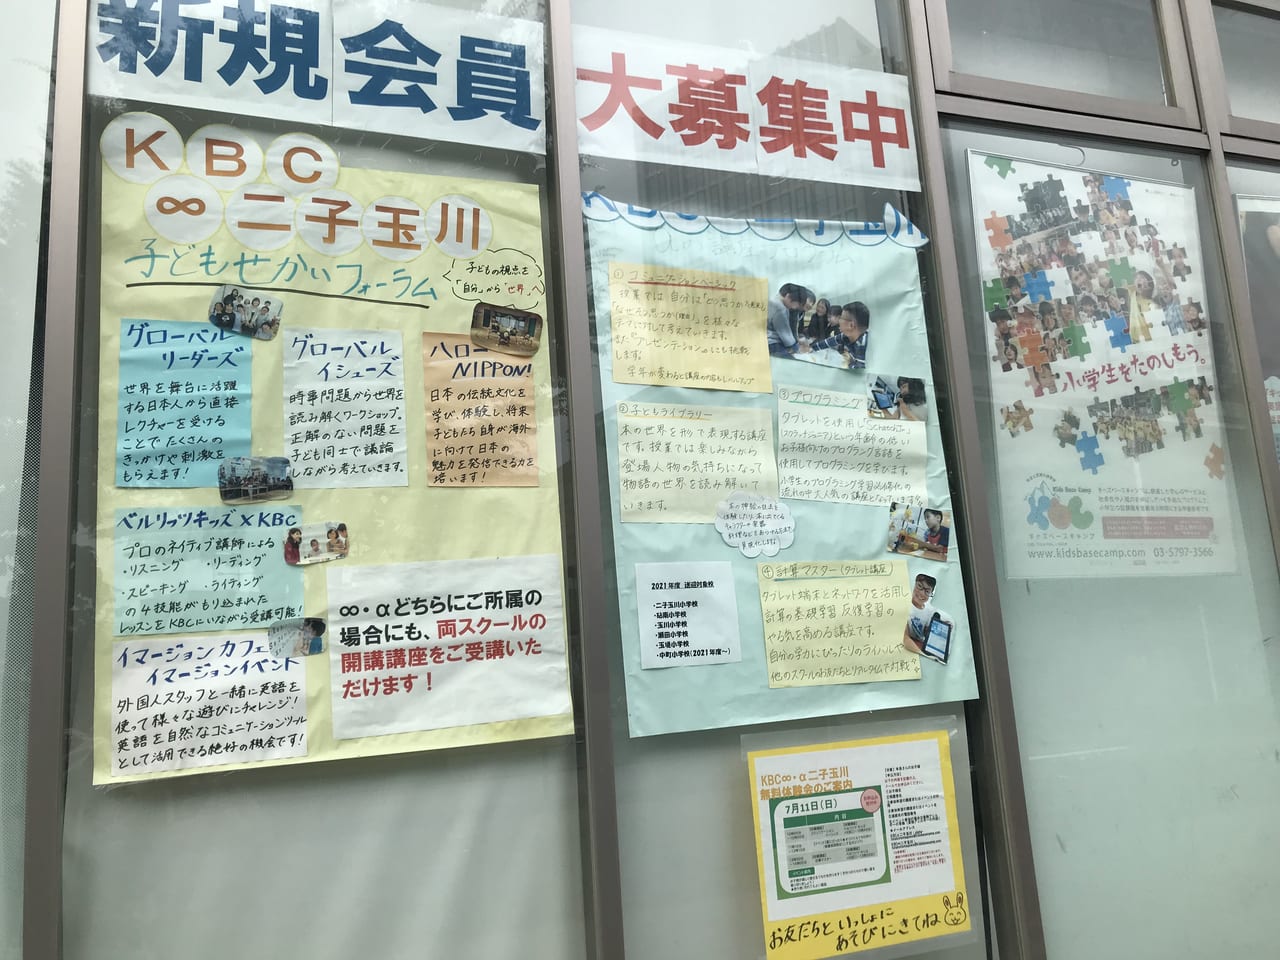 新規会員
大募集中
KBC
∞二子玉川
子どもせかいフォーラム
子どもの視点を
「自分」から"世界"へ
グローバル
リーダーズ
世界を舞台に活躍
する日本人から直接
レクチャーを受ける
ことで たくさんの
きっかけや刺激を
もらえます!
グローバル
イシューズ
時事問題から世界を
読み解くワークショップ。
正解のない問題を
子ども同士で議論
しながら考えていきます。
ハロー
NIPPON!
日本の伝統文化を
学び、体験し、将来
子どもたち自身が海外
に向けて日本の
魅力を発信できる力を
培います!
ベルリッツキッズ×KBC
プロのネイティブ講師による
・リスニング ・リーディング
・スピーキング ・ライティング
の4技能がもり込まれた
レッスンをKBCにいながら受講可能!
イマージョン カフェ
イマージョンイベント
外国人スタッフと一緒に英語を
使って様々な遊びにチャレンジ!
英語を自然なコミュニケーションツール
として活用できる絶好の機会です!
∞・αどちらにご所属の
場合にも、両スクールの
開講講座をご受講いた
だけます!
① コミュニケーションベーシック
授業では 自分は「どう思うか」
「なぜそう思うか(理由)」を様々な
テーマに対して考えていきます。
また「プレゼンテーション」にも挑戦
します。
学年が変わると講座の内容もレベルアップ
② 子どもライブラリー
本の世界を形で表現する講座
です。授業では楽しみながら
登場人物の気持ちになって
物語の世界を読み解いて
いきます。
③ プログラミング
タブレットを使用し「ScratchJr」
(スクラッチジュニア)という年齢の低い
お子様向けのプログラミング言語を
使用してプログラミングを学びます。
小学生のプログラミング学習必修化の
流れの中 大人気の講座となっています。
④ 計算マスター (タブレット講座)
タブレット端末とネットワークを活用し
計算の基礎学習 反復学習の
やる気を高める講座です。
自分の学力にぴったりのライバルや
他のスクールのお友だちとリアルタイムで対戦?
2021年度 送迎対象校
・二子玉川小学校
・砧南小学校
・玉川小学校
・瀬田小学校
・玉堤小学校
・中町小学校(2021年度～)
KBC∞・α二子玉川
無料体験会のご案内
7月11日(日)
内容
お友だちと いっしょに
あそびにきてね
小学生をたのしもう。
Kids Base Camp
キッズベースキャンプ
www.kidsbasecamp.com 03-5797-3566